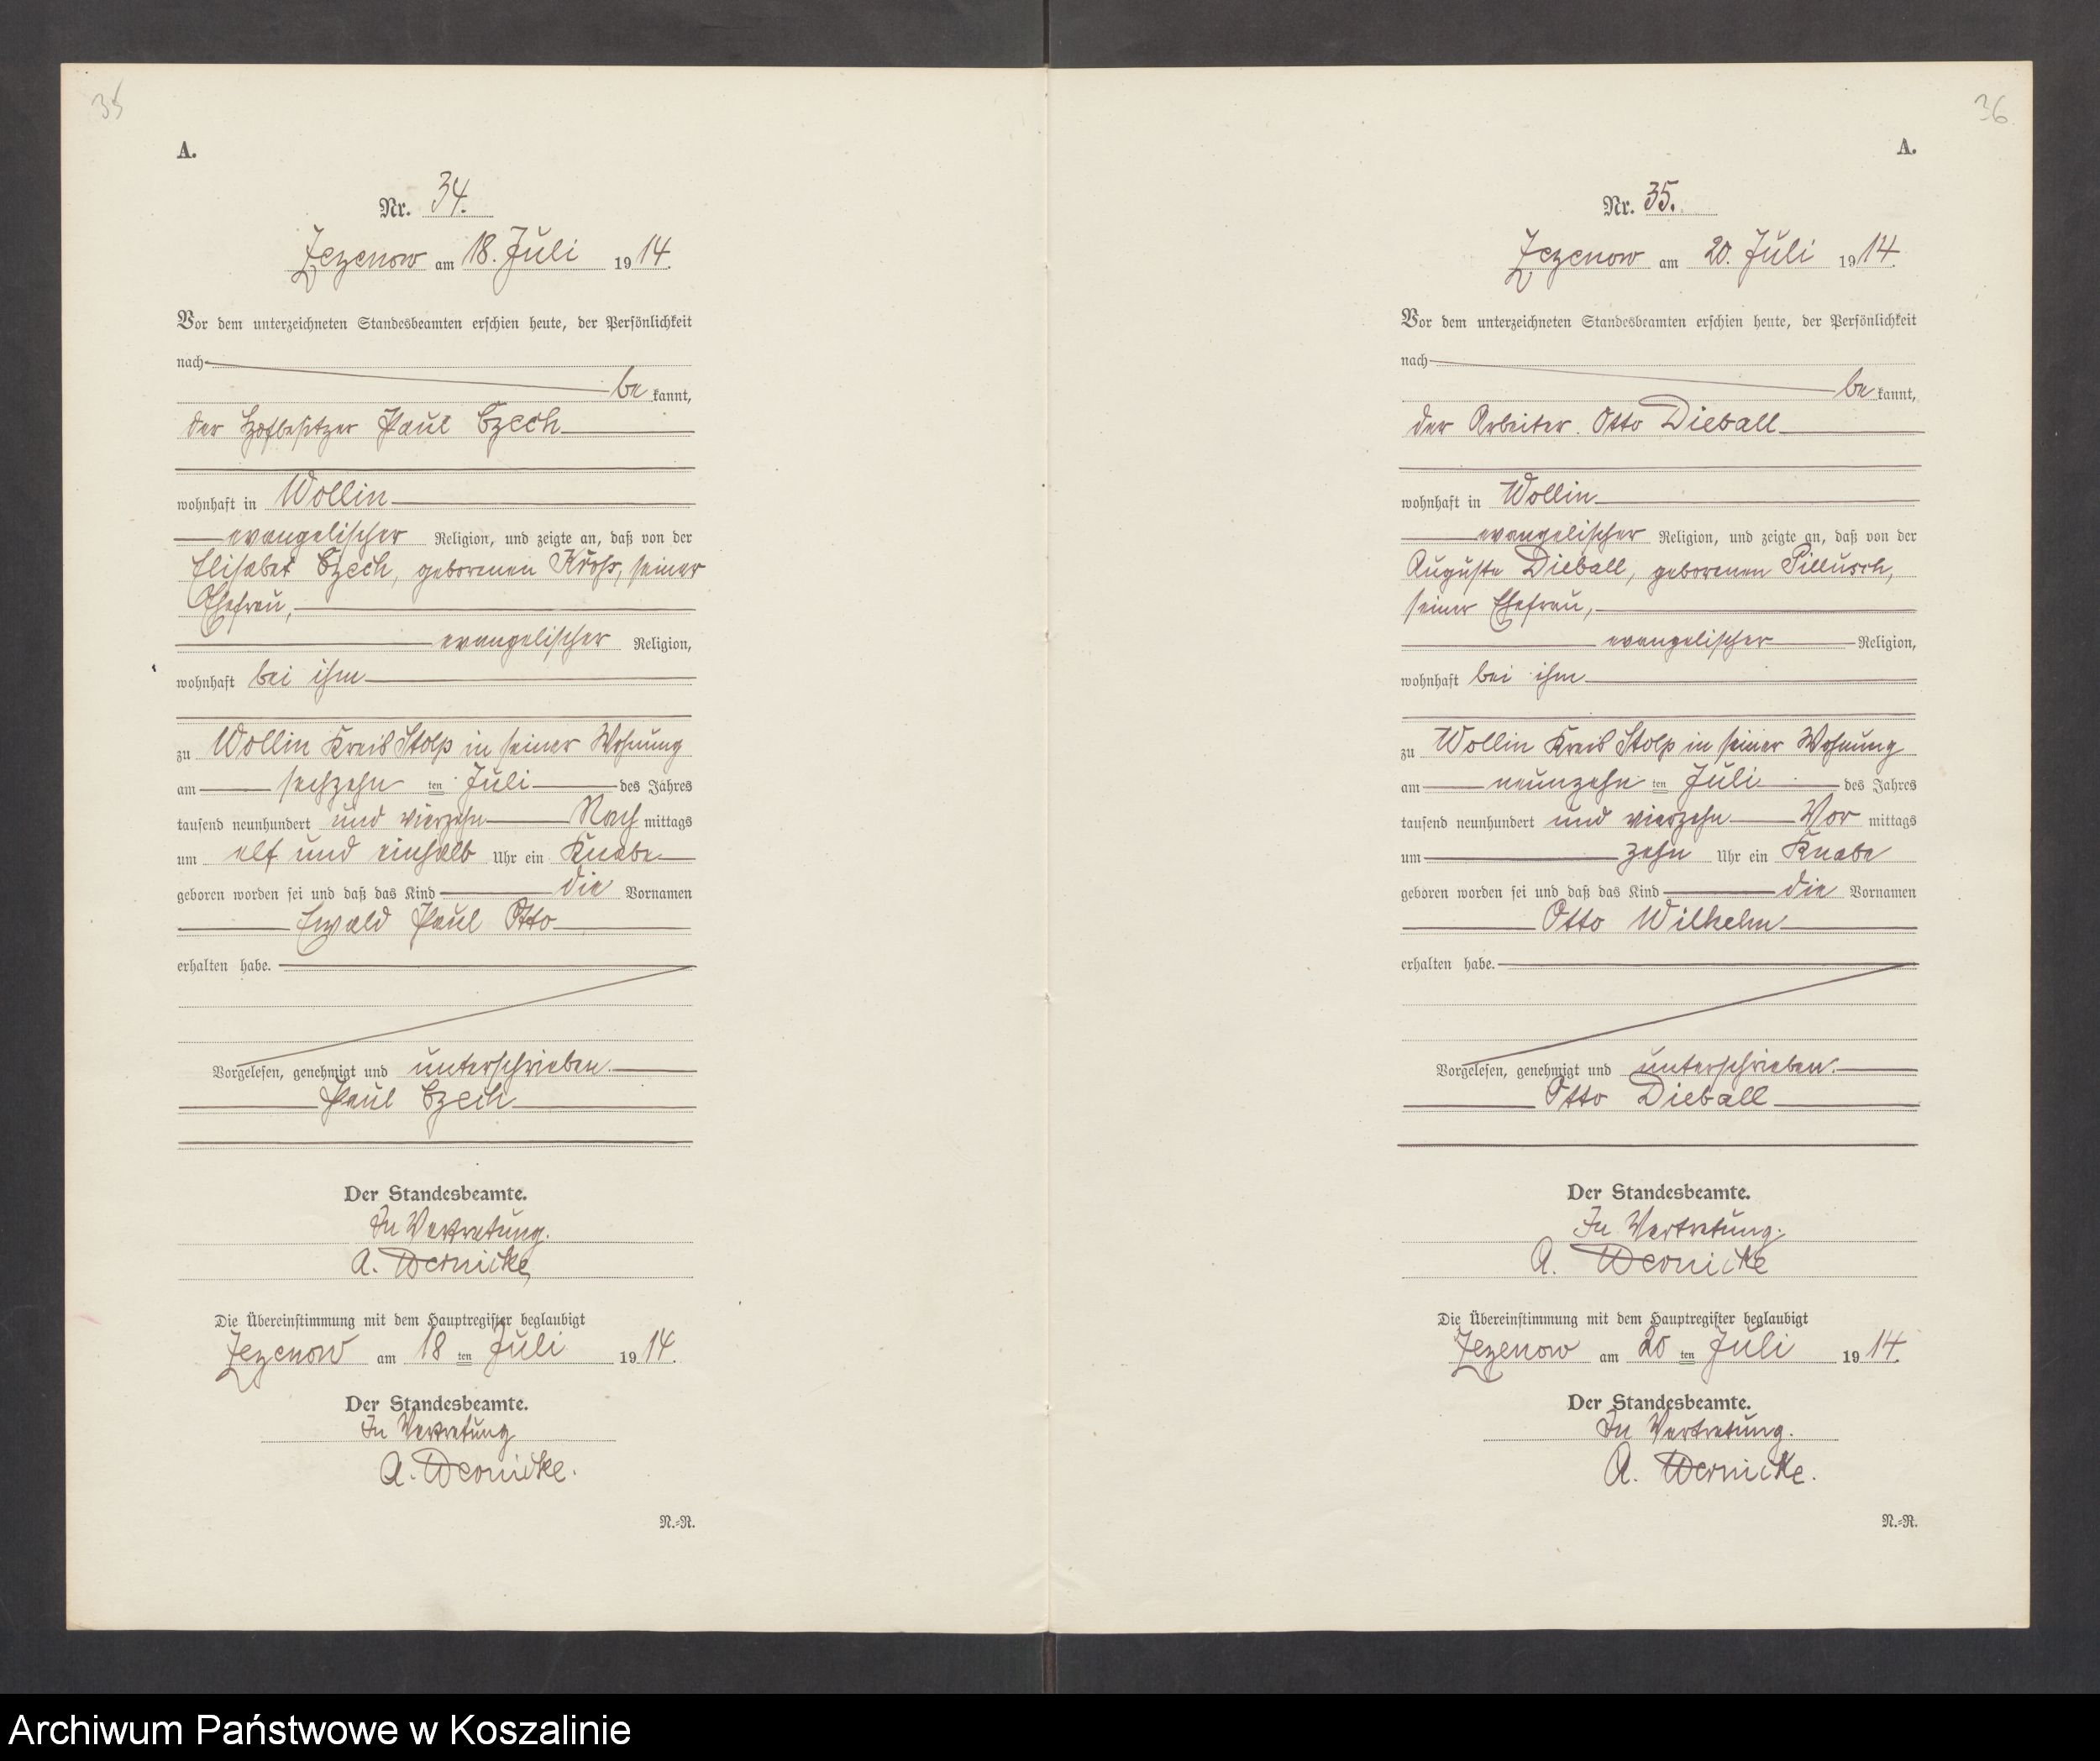 35
A.
Nr. 34.
Zezenow am 18. Juli 1914.
Vor dem unterzeichneten Standesbeamten erschien heute, der Persönlichkeit
nach
be kannt,
der Hofbesitzer Paul Czech
wohnhaft in Wollin
evangelischer Religion, und zeigte an, daß von der
Elisabet Czech, geborenen Kroß, seiner
Ehefrau,
evangelischer Religion,
wohnhaft bei ihm
zu Wollin Kreis Stolp in seiner Wohnung
am sechzehn ten Juli des Jahres
tausend neunhundert und vierzehn Nach mittags
um elf und einhalb Uhr ein Knabe
geboren worden sei und daß das Kind die Vornamen
Ewald Paul Otto
erhalten habe.
Vorgelesen, genehmigt und unterschrieben.
Paul Czech
Der Standesbeamte.
In Vertretung.
A. Wernicke
Die Übereinstimmung mit dem Hauptregister beglaubigt
Zezenow am 18 ten Juli 1914.
Der Standesbeamte.
In Vertretung
A. Wernicke.
N.=R.
36
A.
Nr. 35.
Zezenow am 20. Juli 1914.
Vor dem unterzeichneten Standesbeamten erschien heute, der Persönlichkeit
nach
be kannt,
der Arbeiter Otto Dieball
wohnhaft in Wollin
evangelischer Religion, und zeigte an, daß von der
Auguste Dieball, geborenen Pillusch,
seiner Ehefrau,
evangelischer Religion,
wohnhaft bei ihm
zu Wollin Kreis Stolp in seiner Wohnung
am neunzehn ten Juli des Jahres
tausend neunhundert und vierzehn Vor mittags
um zehn Uhr ein Knabe
geboren worden sei und daß das Kind die Vornamen
Otto Wilhelm
erhalten habe.
Vorgelesen, genehmigt und unterschrieben.
Otto Dieball
Der Standesbeamte.
In Vertretung.
A. Wernicke
Die Übereinstimmung mit dem Hauptregister beglaubigt
Zezenow am 20 ten Juli 1914.
Der Standesbeamte.
In Vertretung.
A. Wernicke.
N.=R.
Archiwum Państwowe w Koszalinie